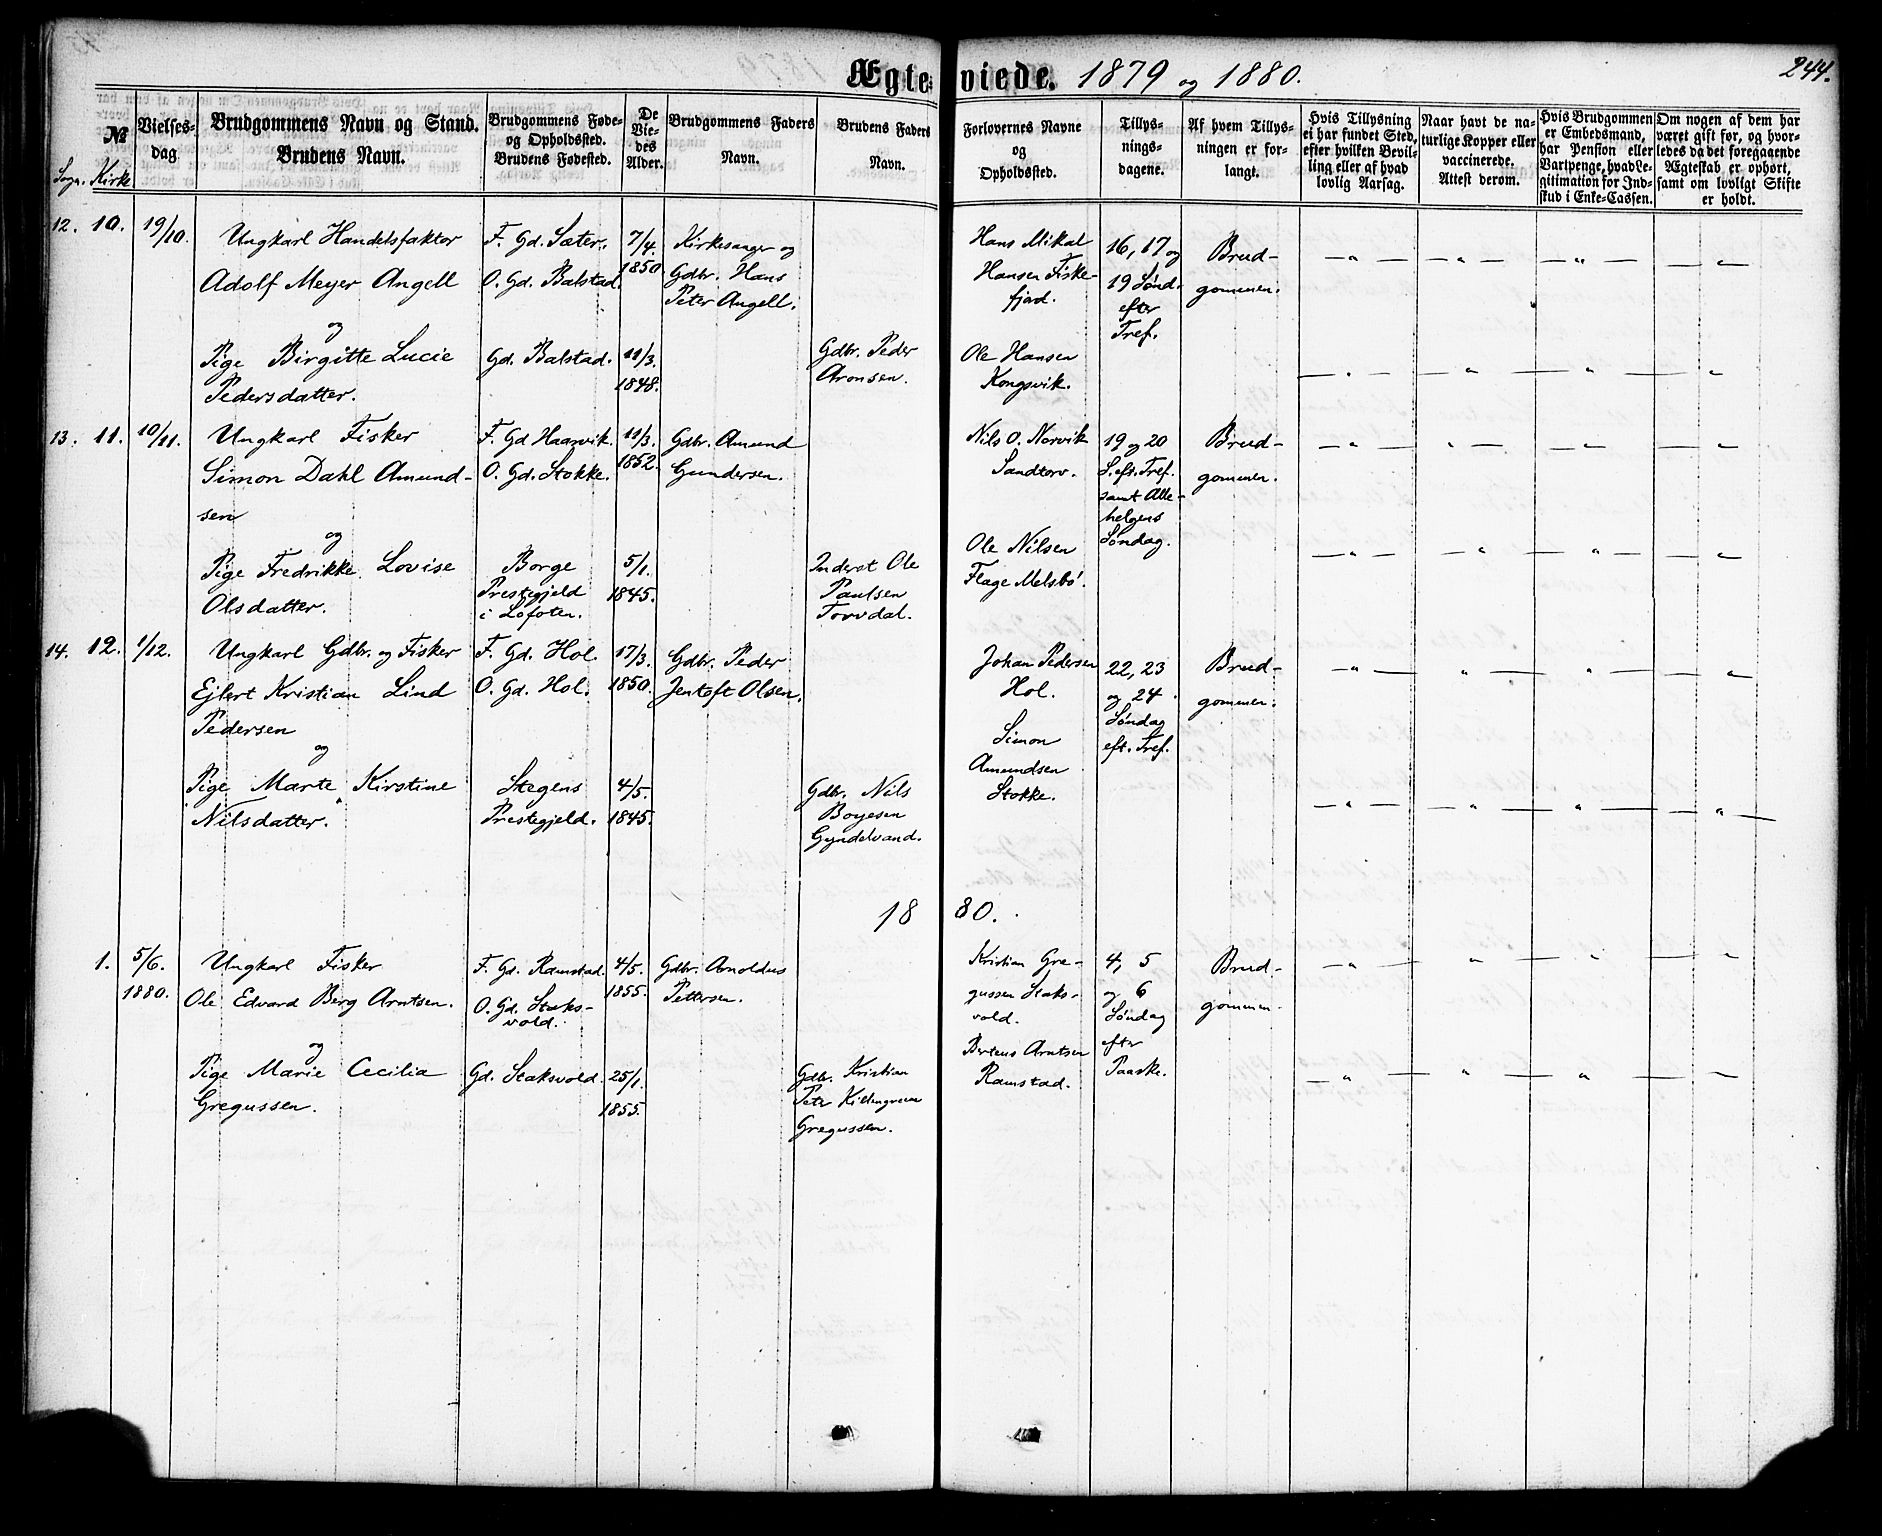 Ægteviede. 1879 og 1880.
244.
№
Sogn. Kirke
Vielses-
dag.
Brudgommens Navn og Stand.
Brudens Navn.
Brudgommens Føde-
og Opholdssted.
Brudens Fødested.
De
Vie-
des
Alder.
Brudgommens Faders
Navn.
Brudens Faders
Navn.
Forlovernes Navne
og
Opholdssted.
Tillys-
nings-
dagene.
Af hvem Tillys-
ningen er for-
langt.
Hvis Tillysning
ei har fundet Sted,
efter hvilken Bevil-
ling eller af hvad
lovlig Aarsag.
Naar havt de na-
turlige Kopper eller
vaccinerede.
Attest derom.
Hvis Brudgommen
er Embedsmand,
har Pension eller
Vartpenge, hvad Le-
gitimation for Ind-
skud i Enke-Cassen.
Om nogen af dem har
været gift før, og hvor-
ledes da det foregaaende
Ægteskab er ophørt,
samt om lovligt Skifte
er holdt.
12. 10. 19/10.
Ungkarl Handelsfaktor
Adolf Meyer Angell
og
Pige Birgitte Lucie
Pedersdatter.
F. Gd. Sæter.
O. Gd. Balstad.
Gd. Balstad.
7/4.
1850
11/3.
1848.
Kirkesanger og
Gdbr. Hans
Peter Angell.
Gdbr. Peder
Aronsen.
Hans Mikal
Hansen Fiske-
fjord.
Ole Hansen
Kongsvik.
16, 17 og
19 Sønd.
efter
Tref.
Brud-
gommen.
13. 11. 10/11.
Ungkarl Fisker
Simon Dahl Amund-
sen
og
Pige Fredrikke Lovise
Olsdatter.
F. Gd Haarvik.
O. Gd. Stokke.
Borge
Prestegjeld
i Lofoten.
11/3.
1852.
5/1.
1845.
Gdbr. Amund
Gundersen.
Inderst Ole
Paulsen
Torvdal.
Nils O. Norvik
Sandtorv.
Ole Nilsen
Flage Melsbø.
19 og 20
S. eft. Tref.
samt Alle-
helgens
Søndag.
Brud-
gommen.
14. 12. 1/12.
Ungkarl Gdbr. og Fisker
Ejlert Kristian Lind
Pedersen
og
Pige Marte Kirstine
Nilsdatter.
F. Gd. Hol.
O. Gd. Hol.
Stegens
Prestegjeld.
17/3.
1850.
4/5.
1845.
Gdbr. Peder
Jentoft Olsen.
Gdbr. Nils
Boyesen
Gyndelvand.
Johan Pedersen
Hol.
Simon
Amundsen
Stokke.
22, 23
og 24
Søndag
eft. Tref.
Brud-
gommen.
1880.
1. 5/6.
1880.
Ungkarl Fisker
Ole Edvard Berg Arntsen.
og
Pige Marie Cecilia
Gregussen.
F. Gd. Ramstad.
O. Gd. Staks-
vold.
Gd. Staksvold.
4/5.
1855.
25/1.
1855.
Gdbr. Arnoldus
Pettersen.
Gdbr. Kristian
Peter
Gregussen.
Kristian Gre-
gussen Staks-
vold.
Berteus Arntsen
Ramstad.
4, 5
og 6
Søndag
efter
Paaske.
Brud-
gommen.